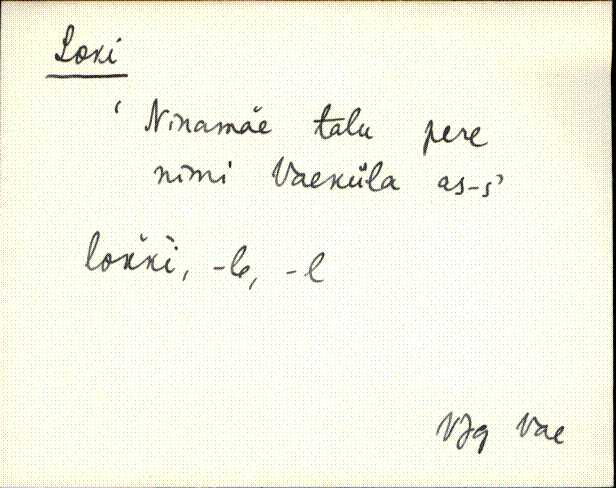 Loki
‘Ninamäe talu pere
nimi Vaeküla as-s’
lok̀ki, -le, -l
VJg Vae